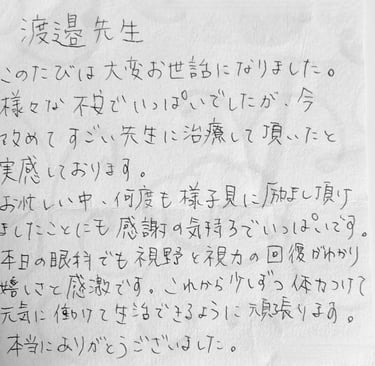 渡邉先生
このたびは大変お世話になりました。
様々な不安でいっぱいでしたが、今
改めてすごい先生に治療して頂いたと
実感しております。
お忙しい中、何度も様子見に励まし頂け
ましたことにも感謝の気持ちでいっぱいです。
本日の眼科でも視野と視力の回復がわかり
嬉しさと感激です。これから少しずつ体力つけて
元気に働けて生活できるように頑張ります。
本当にありがとうございました。